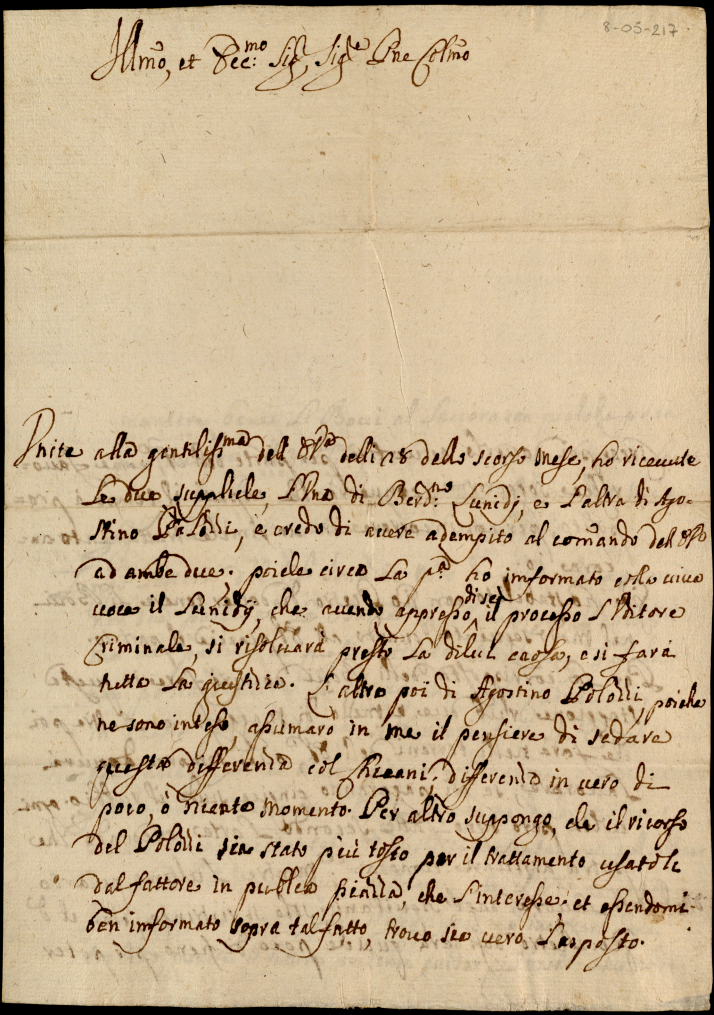 8-05-217
Illmo, et Ecc:mo Sigr, Sigre Pne Colmo
Unite alla gentilissma dell' E.Va delli 28 dello scorso mese, ho riceuute
Le due suppliche, L'una di Berd:no Lunidij, e L'altra di Ago-
stino Polozzi, e credo di auere adempito al comando del E.Va
ad ambe due; poiche circa La pa ho imformato colla uiua
uoce il Lunidij, che auendo appresso di se il processo L'Uditore
Criminale, si risoluarà presto La di lui causa, e si farà
tutta La giustitia. L'altra poi di Agostino Polozzi, poiche
ne sono inteso, assumarò in me il pensiere di sedare
questa differenza col Chicani; differenza in uero di
poco, ò niente momento. Per altro suppongo, che il ricorso
del Polozzi sia stato più tosto per il trattamento usatoli
dal fattore in publica piazza, che L'interesse; et essendomi
ben informato sopra tal fatto, trouo sia uero L'esposto.